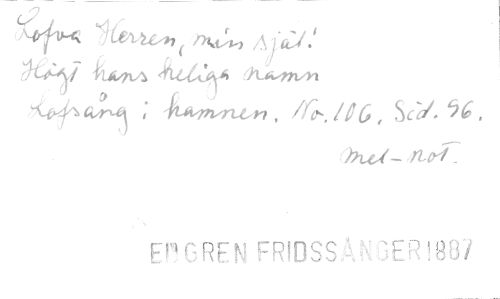 Lofva Herren, min själ!
Högt hans heliga namn
Lofsång i hamnen. No. 106. Sid. 96.
Mel-not.
EDGREN FRIDSSÅNGER 1887